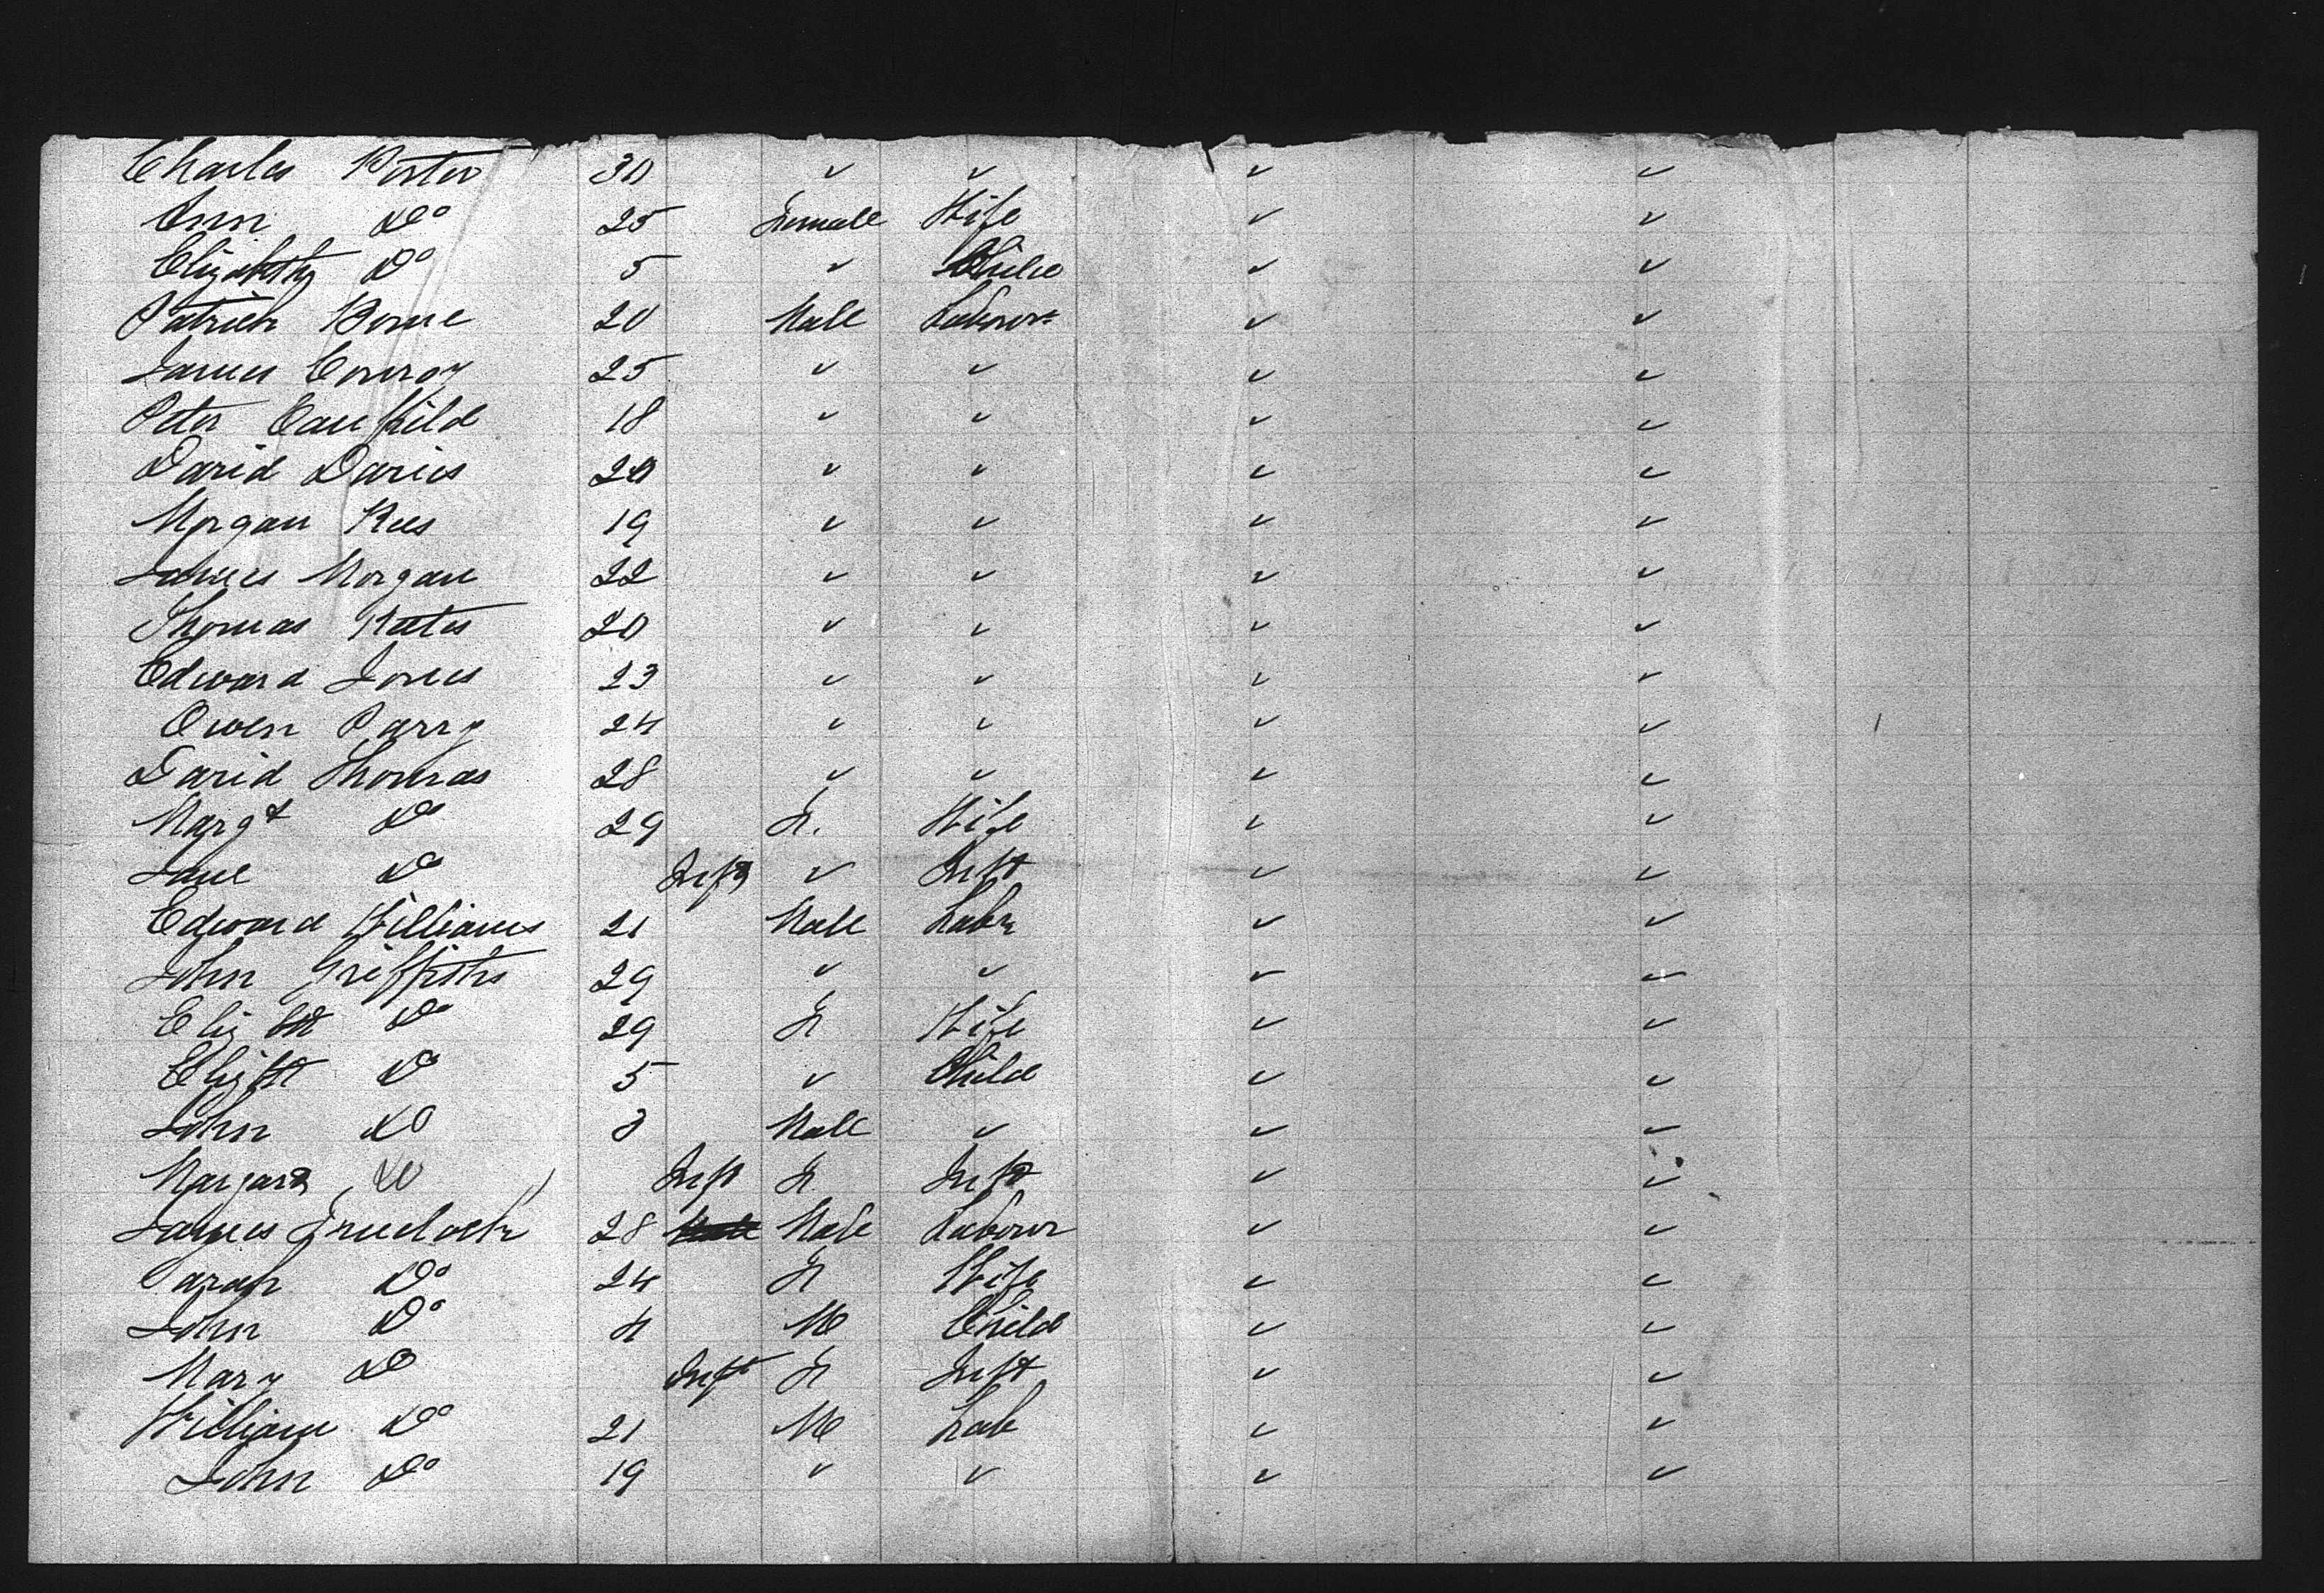 Charles Porter 30 " " " "
Ann Do 25 Female Wife " "
Elizabeth Do 5 " Child " "
Patrick Borne 20 Male Laborer " "
James Conroy 25 " " " "
Peter Caulfild 18 " " " "
David Davies 20 " " " "
Morgan Rees 19 " " " "
James Morgan 22 " " " "
Thomas 20 " " " "
Edward Jones 23 " " " "
Owen Parry 24 " " " "
David Thomas 28 " " " "
Margt Do 29 F. Wife " "
Jane Do Inft " Inft " "
Edward Williams 21 Male Labr " "
John Griffiths 29 " " " "
Elizbt Do 29 F Wife " "
Elizbt Do 5 " Child " "
John Do 3 Male " " "
Margart Do Inft F Inft " "
James Truelock 28 Male Labour " "
Sarah Do 24 F Wife " "
John Do 4 M Child " "
Mary Do Inft F Inft " "
William Do 21 M Lab " "
John Do 19 " " " "